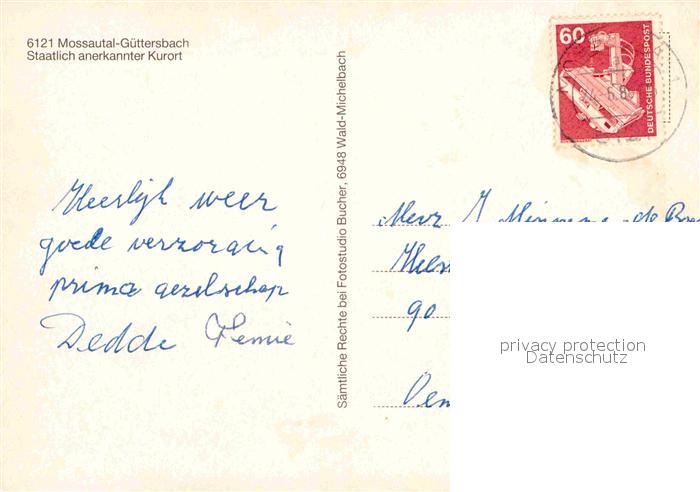 6121 Mossautal-Güttersbach
Staatlich anerkannter Kurort
Heerlijk weer
goede verzorging
prima gezelschap
Dedde
Sämtliche Rechte bei Fotostudio Bucher, 6948 Wald-Michelbach
60
DEUTSCHE BUNDESPOST
Mevr J Minnema - de
90
privacy protection
Datenschutz